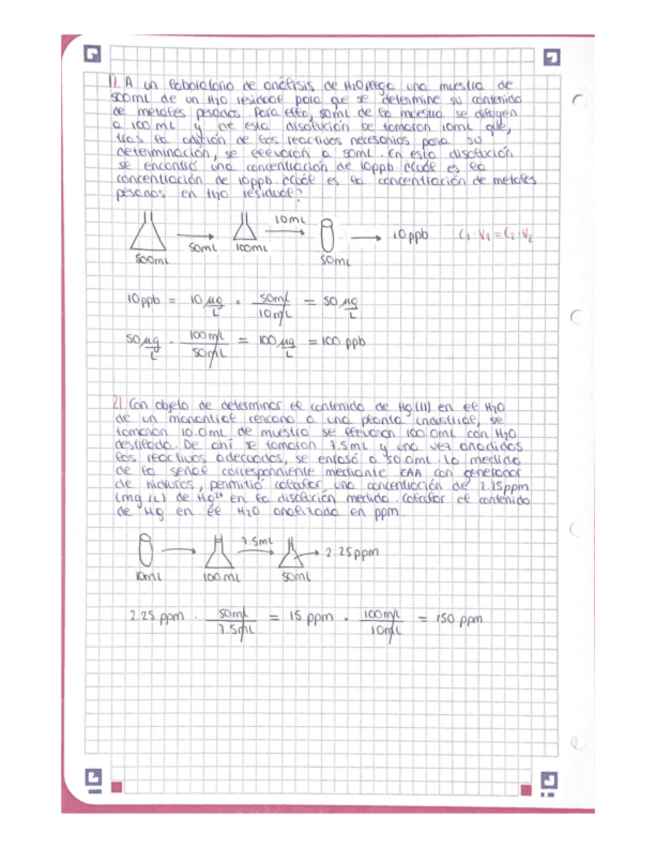 1) A un laboratorio de análisis de H2O llega una muestra de
500mL de un H2O residual para que se determine su contenido
de metales pesados. Para ello, 50mL de la muestra se diluyen
a 100 mL y de esta disolución se tomaron 10mL que,
tras la adición de los reactivos necesarios para su
determinación, se llevaron a 50mL. En esta disolución
se encontró una concentración de 10ppb ¿Cuál es la
concentración de 10ppb ¿Cuál es la concentración de metales
pesados en H2O residual?
10mL
50mL → 10 ppb C1·V1=C2·V2
500mL 100mL 50mL
10ppb = 10 μg/L · 50mL/10mL = 50 μg/L
50 μg/L · 100mL/50mL = 100 μg/L = 100 ppb
2) Con objeto de determinar el contenido de Hg(II) en el H2O
de un manantial cercano a una planta industrial, se
tomaron 10.0mL de muestra se llevaron 100.0mL con H2O
destilada. De ahí se tomaron 7.5mL y una vez añadidos
los reactivos adecuados, se enrasó a 50.0mL. La medida
de la señal correspondiente mediante EAA con generador
de hidruros, permitió calcular una concentración de 2.25ppm
(mg/L) de Hg2+ en la disolución medida. Calcular el contenido
de Hg en el H2O analizada en ppm.
7.5mL
→ 2.25ppm
10mL 100mL 50mL
2.25 ppm · 50mL/7.5mL = 15 ppm · 100mL/10mL = 150 ppm